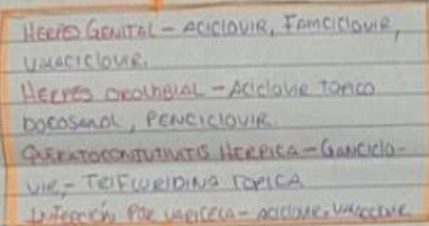 HERPES GENITAL - ACICLOVIR, FAMCICLOVIR,
VALACICLOVIR.
HERPES OROLABIAL - ACICLOVIR TOPICO
DOCOSANOL, PENCICLOVIR.
QUERATOCONJUTIVITIS HERPICA - GANCICLO-
VIR, - TRIFLURIDINA TOPICA
INFECCIÓN POR VARICELA - ACICLOVIR,